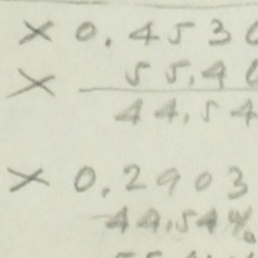 × 0.4530
× 55.40
44.54
× 0.2903
44.54%